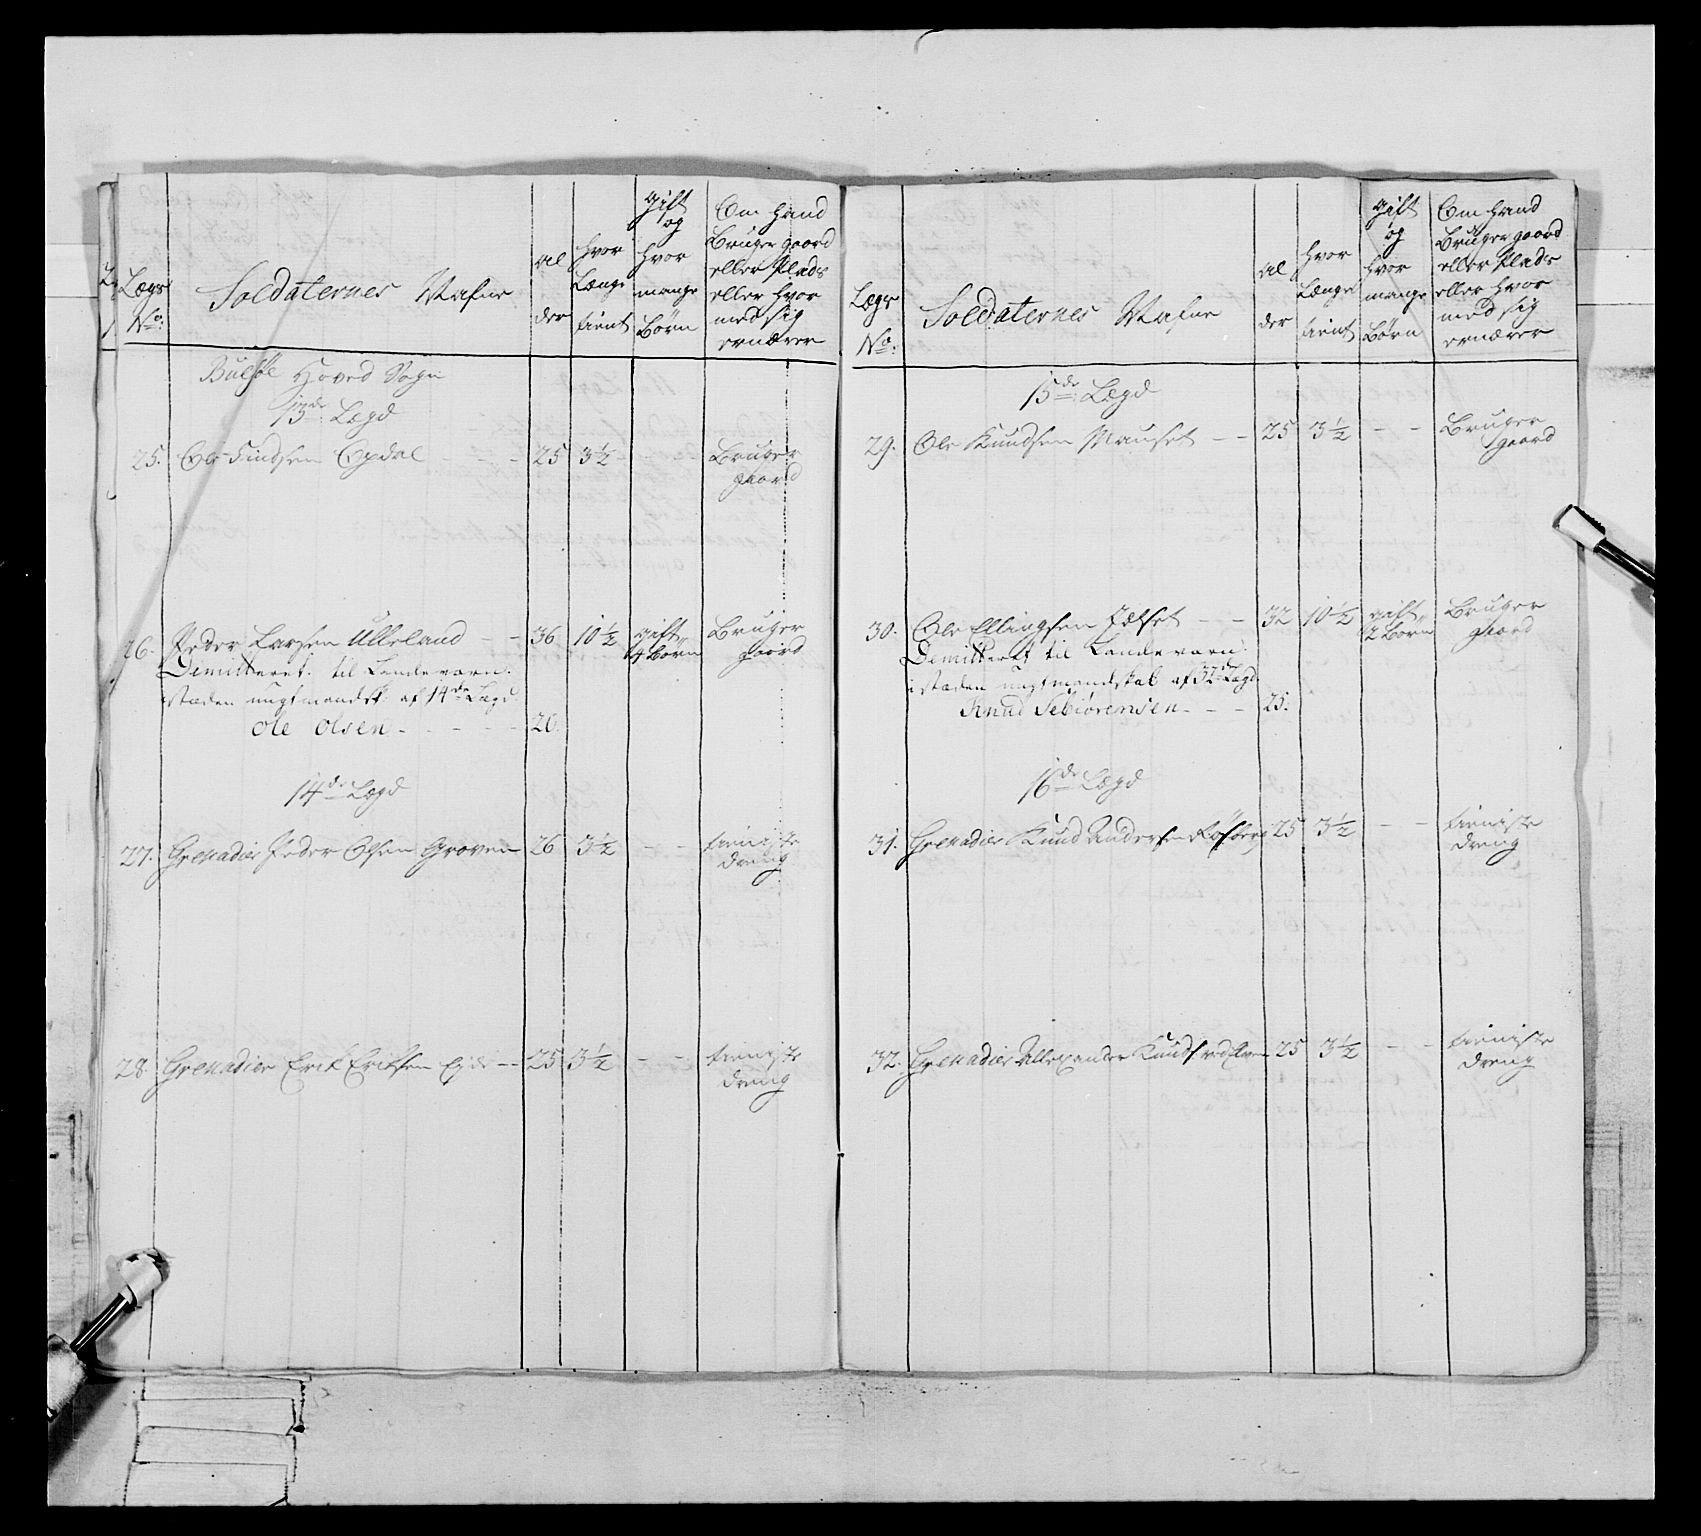 Lægs No:
Soldaternes Nafne
Al der
hvor Længe tient
gift og hvor mange Børn
Om hand Bruger gaard eller Plads eller hvor med sig ernærer
Hoved Sogn
13de Lægd
25. Ole Opdal - - 25 3½ - - Bruger gaard
26. Peder Larsen Ulleland - - 36 10½ gift 4 børn Bruger gaard
Demitteret til Landeværn
istæden ungtmandsk: af 14de Lægd
Ole Olsen - - - - - 20.
14de Lægd
27. Grenadier Peder Olsen Groven 26 3½ - - tieniste dreng
28. Grenadier Erik Eriksen Eide - - 25 3½ - - tieniste dreng
Lægs No:
Soldaternes Nafne
Al der
hvor Længe tient
gift og hvor mange Børn
Om hand Bruger gaard eller Plads eller hvor med sig ernærer
15de Lægd
29. Ole Knudsen Mauset - - 25 3½ - - Bruger gaard
30. Ole Ellingsen - - 32 10½ gift 2 Børn Bruger gaard
Demitteret til Landeværn
istæden ungtmandskab af 32de Lægd
Knud - - - 25.
16de Lægd
31. Grenadier Knud Andersen 25 3½ - - tieniste dreng
32. Grenadier Allexander 25 3½ - - tieniste dreng